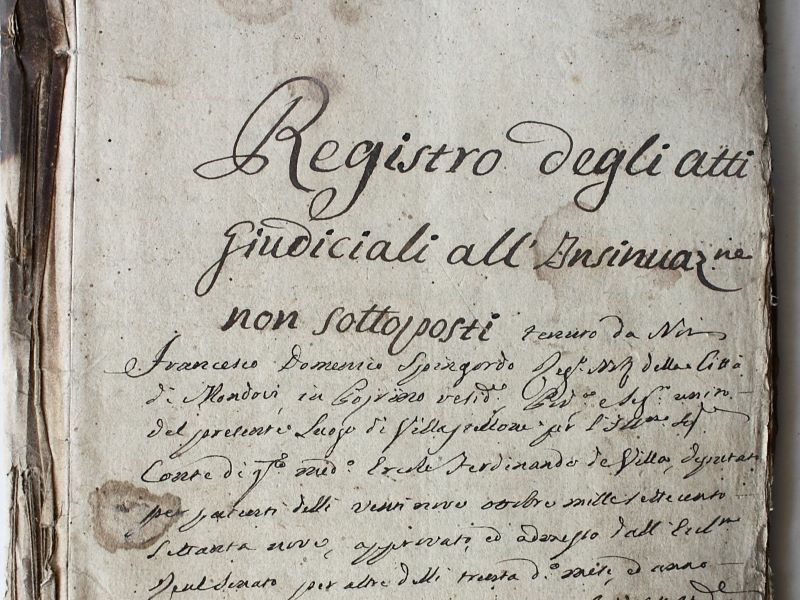 Registro degli atti
Giudiciali all' Insinuaz.ne
non sottoposti tenuto da Noi
Francesco Domenico Spingardo Reg.o Not.o della Città
di Mondovi, in
del presente Luogo di Villastellone per l'Ill.mo Sig.r
Conte di q.to med.o Ercole Ferdinando de Villa, deputato
per patenti delli venti nove ottobre mille settecento
settanta nove, approvato, ed admesso dall' Ecc.mo
Real Senato per altre delli trenta d.o mese, ed anno